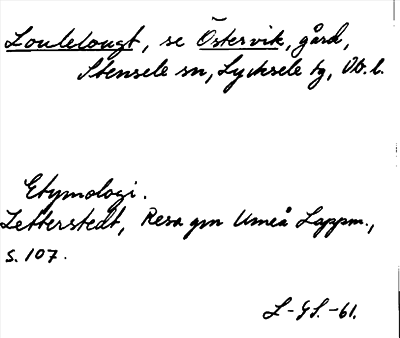 Loulelougt, se Östervik, gård,
Stensele sn, Lycksele tg, Vb. l.
Etymologi.
Zetterstedt, Resa gm Umeå Lappm.,
s. 107.
L-GS.-61.